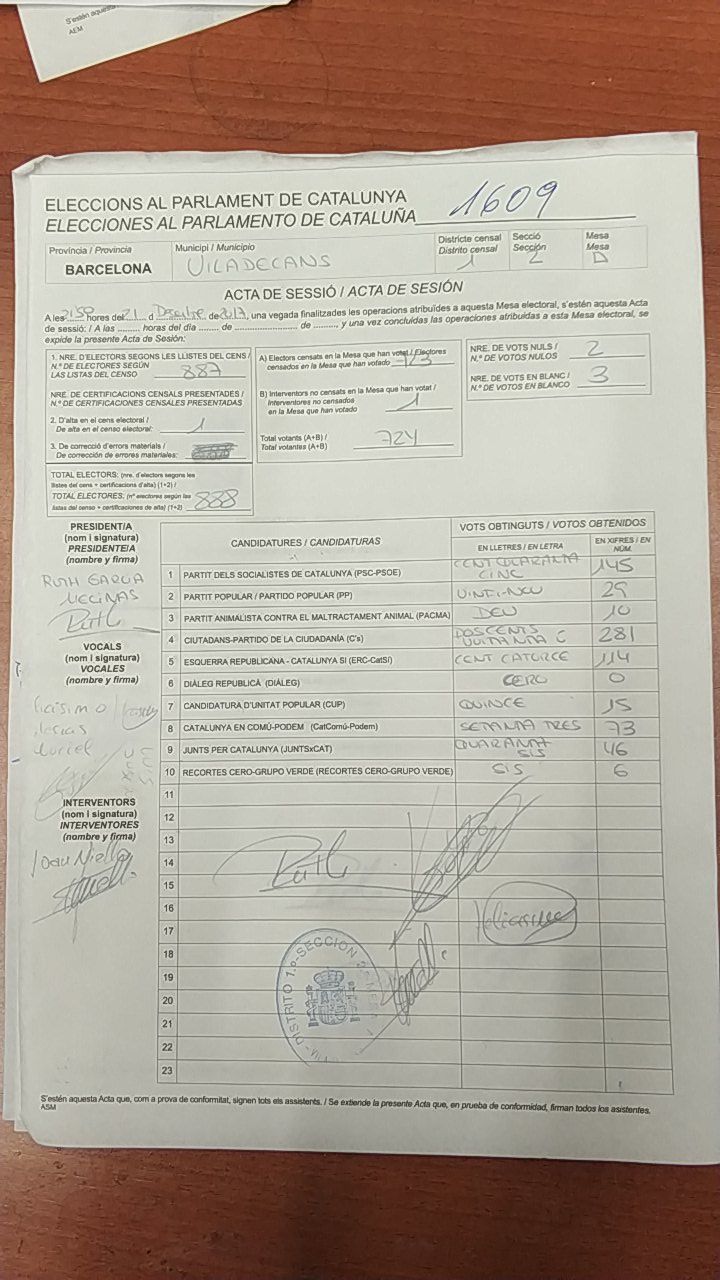 S'estén aquesta
AEM
ELECCIONS AL PARLAMENT DE CATALUNYA
ELECCIONES AL PARLAMENTO DE CATALUÑA 1609
Província / Provincia
BARCELONA
Municipi / Municipio
VILADECANS
Districte censal
Distrito censal
1
Secció
Sección
2
Mesa
Mesa
ACTA DE SESSIÓ / ACTA DE SESIÓN
A les 21:50 hores del 21 d Desembre de 2017, una vegada finalitzades les operacions atribuïdes a aquesta Mesa electoral, s'estén aquesta Acta
de sessió: / A las ........ horas del día ....... de ....................... de ........, y una vez concluidas las operaciones atribuidas a esta Mesa electoral, se
expide la presente Acta de Sesión:
1. NRE. D'ELECTORS SEGONS LES LLISTES DEL CENS /
N.º DE ELECTORES SEGÚN
LAS LISTAS DEL CENSO 887
NRE. DE CERTIFICACIONS CENSALS PRESENTADES /
N.º DE CERTIFICACIONES CENSALES PRESENTADAS
2. D'alta en el cens electoral /
De alta en el censo electoral: 1
3. De correcció d'errors materials /
De corrección de errores materiales:
TOTAL ELECTORS: (nre. d'electors segons les
llistes del cens + certificacions d'alta) (1+2) /
TOTAL ELECTORES: (nº electores según las
listas del censo + certificaciones de alta) (1+2) 888
A) Electors censats en la Mesa que han votat / Electores
censados en la Mesa que han votado 723
B) Interventors no censats en la Mesa que han votat /
Interventores no censados
en la Mesa que han votado 1
Total votants (A+B) /
Total votantes (A+B) 724
NRE. DE VOTS NULS /
N.º DE VOTOS NULOS 2
NRE. DE VOTS EN BLANC /
N.º DE VOTOS EN BLANCO 3
PRESIDENT/A
(nom i signatura)
PRESIDENTE/A
(nombre y firma)
RUTH GARCIA
MECINAS
Ruth
VOCALS
(nom i signatura)
VOCALES
(nombre y firma)
INTERVENTORS
(nom i signatura)
INTERVENTORES
(nombre y firma)
Joan Niello
CANDIDATURES / CANDIDATURAS
VOTS OBTINGUTS / VOTOS OBTENIDOS
EN LLETRES / EN LETRA
EN XIFRES / EN NÚM.
1 PARTIT DELS SOCIALISTES DE CATALUNYA (PSC-PSOE) CENT QUARANTA CINC 145
2 PARTIT POPULAR / PARTIDO POPULAR (PP) VINT-I-NOU 29
3 PARTIT ANIMALISTA CONTRA EL MALTRACTAMENT ANIMAL (PACMA) DEU 10
4 CIUTADANS-PARTIDO DE LA CIUDADANÍA (C's) DOSCENTS 281
5 ESQUERRA REPUBLICANA - CATALUNYA SI (ERC-CatSí) CENT CATORCE 114
6 DIÀLEG REPUBLICÀ (DIÀLEG) CERO 0
7 CANDIDATURA D'UNITAT POPULAR (CUP) QUINCE 15
8 CATALUNYA EN COMÚ-PODEM (CatComú-Podem) SETANTA TRES 73
9 JUNTS PER CATALUNYA (JUNTSxCAT) QUARANTA SIS 46
10 RECORTES CERO-GRUPO VERDE (RECORTES CERO-GRUPO VERDE) SIS 6
11
12
13
14
15
16
17
18
19
20
21
22
23
Ruth
DISTRITO 1.º-SECCION 2.ª MESA
S'estén aquesta Acta que, com a prova de conformitat, signen tots els assistents. / Se extiende la presente Acta que, en prueba de conformidad, firman todos los asistentes.
ASM